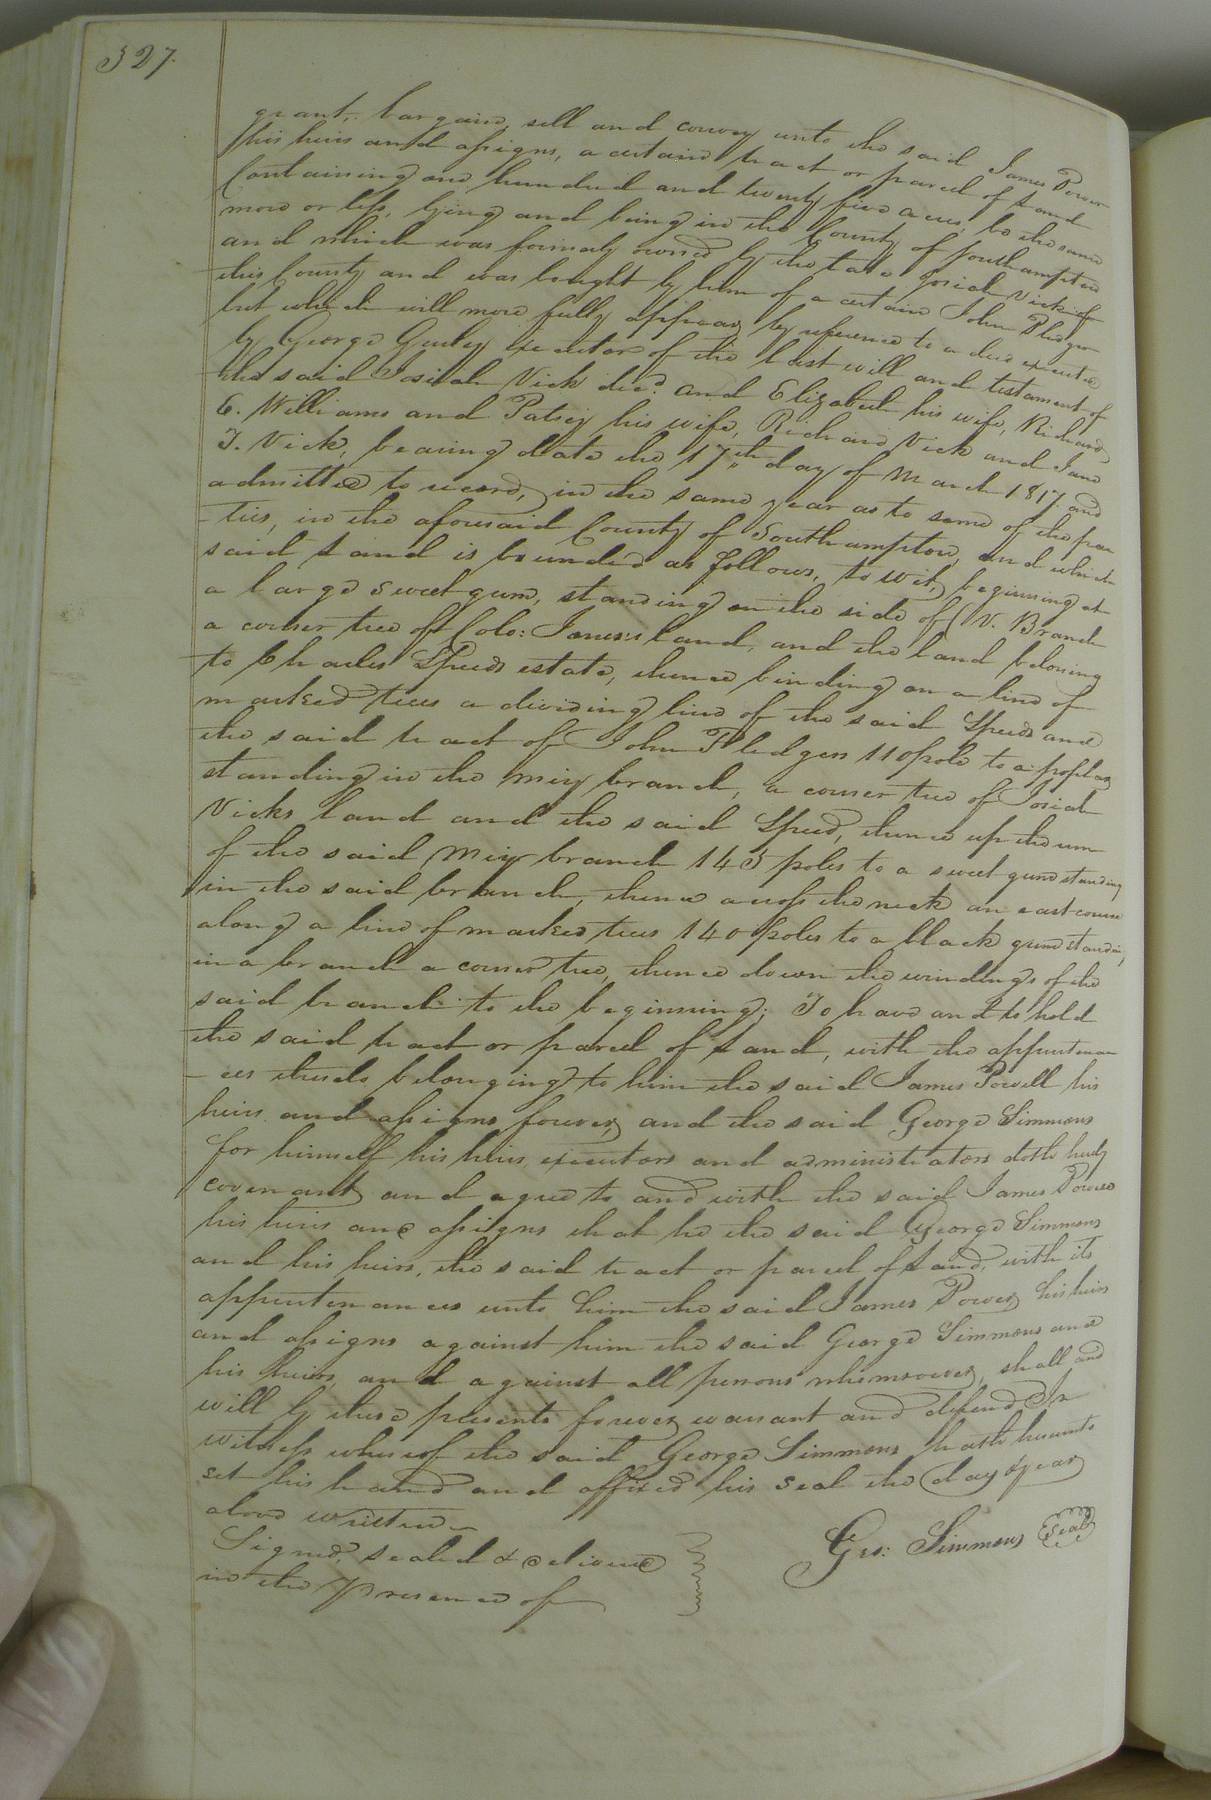 327.
grant, bargain, sell and convey unto the said James Power
his heirs and assigns, a certain tract or parcel of Land
Containing one hundred and twenty five acres, be the same
more or less, lying and being in the County of Southampton
and which was formaly owned by the late Josiah Vick of
this County and was bought by him of a certain John Pledger
but which will more fully appear by reference to a deed executed
by George Gurley executor of the last will and testament of
the said Josiah Vick decd. and Elizabeth his wife, Richard
E. Williams and Patsey his wife, Richard Vick and Jane
T. Vick, bearing date the 17th day of March 1817 and
admitted to record, in the same year as to some of the par
-ties, in the aforesaid County of Southampton, and which
said Land is bounded as follows, to wit, beginning at
a large sweet gum, standing on the side of V. Branch
a corner tree of Colo: Jones's land, and the land belonging
to Charles Speeds estate, thence binding on a line of
marked trees a dividing line of the said Speeds and
the said tract of John Pledgers 110 pole to a poplar
standing in the miry branch, a corner tree of Josiah
Vicks land and the said Speed, thence up the run
of the said Miry branch 145 poles to a sweet gum standing
in the said branch, thence across the neck an east course
along a line of marked trees 140 poles to a black gum standing
in a branch a corner tree, thence down the windings of the
said branch to the beginning; To have and to hold
the said tract or parcel of Land, with the appurtenan
-ces thereto belonging to him the said James Powell his
heirs and assigns forever, and the said George Simmons
for himself his heirs, executors and administrators doth hereby
covenant and agree to and with the said James Power
his heirs and assigns that he the said George Simmons
and his heirs, the said tract or parcel of Land, with its
appurtenances unto him the said James Power his heirs
and assigns against him the said George Simmons and
his heirs, and against all persons whomsoever, shall and
will by these presents forever warrant and defend In
witness whereof the said George Simmons hath hereunto
set his hand and affixed his seal the day & year
above written
Signed, sealed & delivered
in the presence of
Geo: Simmons Seal